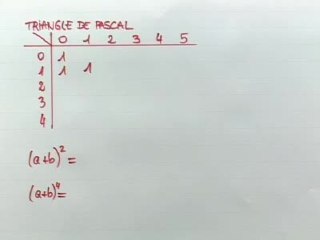 TRIANGLE DE PASCAL
0 1 2 3 4 5
0 1
1 1 1
2
3
4
(a+b)²=
(a+b)⁴=